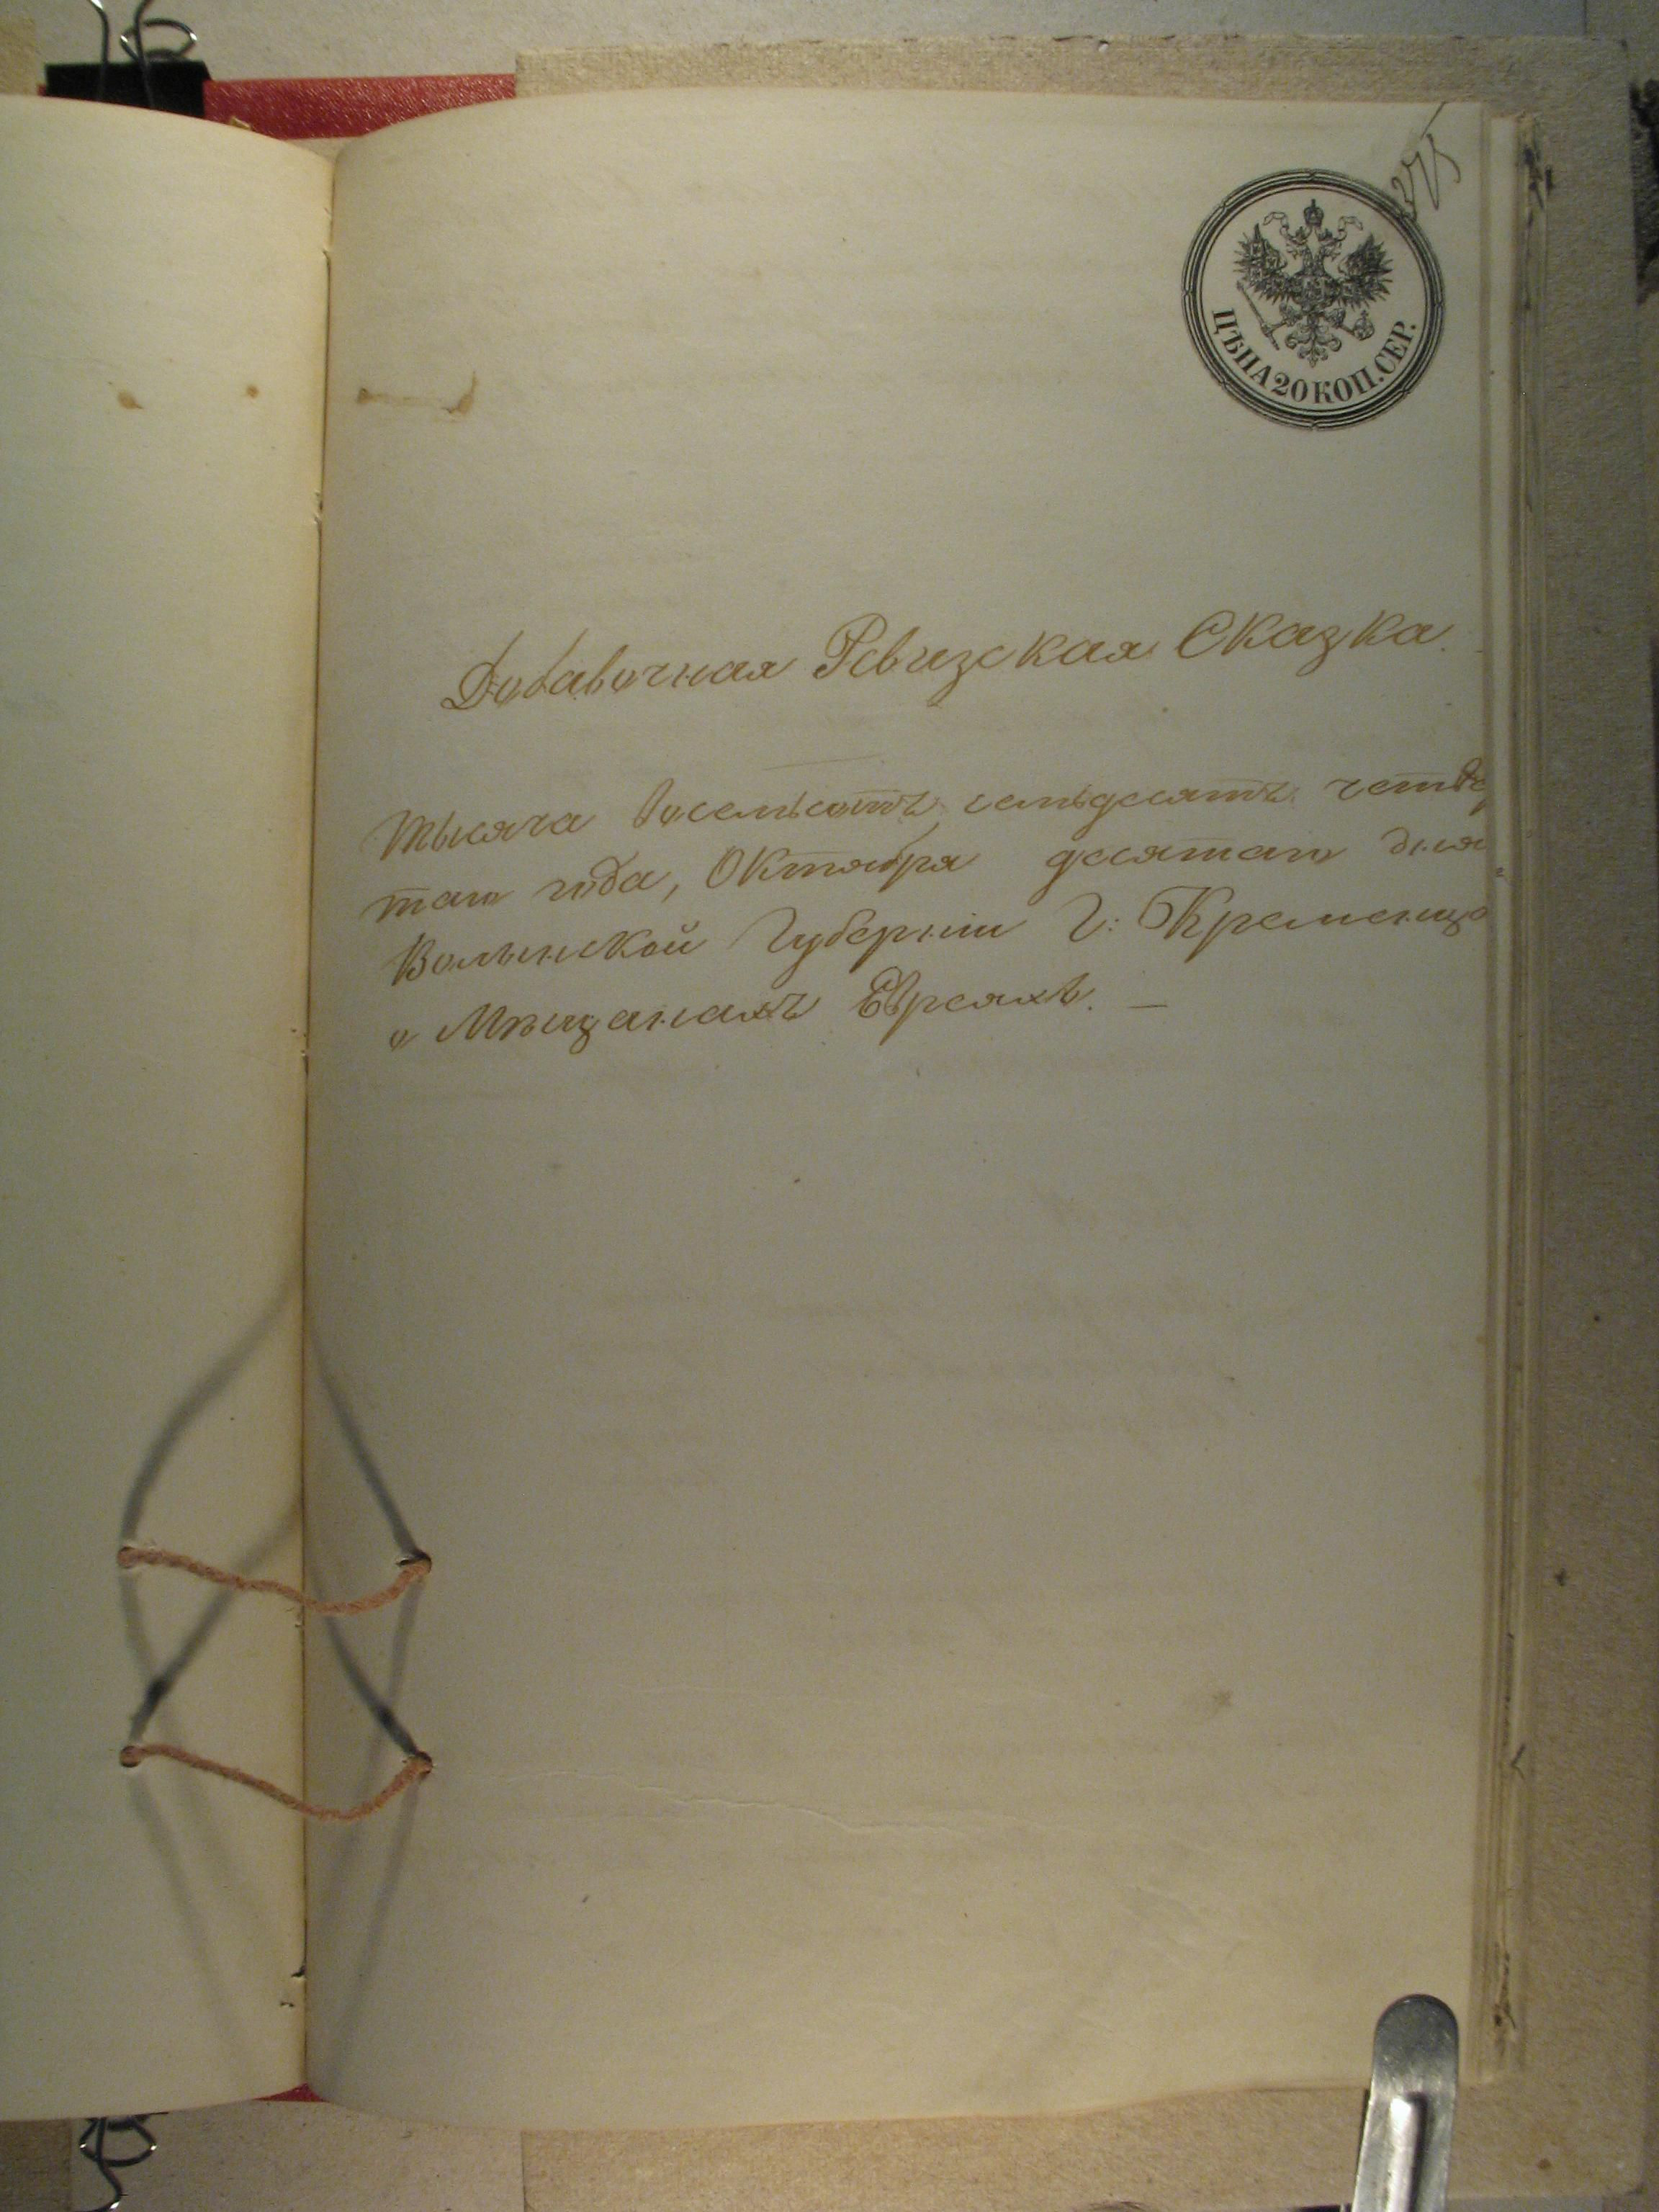 275
ЦѢНА 20 КОП. СЕР.
Добавочная Ревизская Сказка.
Тысяча восемьсотъ семьдесятъ четвер
таго года, Октября десятаго дня
Волынской Губерніи Г: Кременца
о Мѣщанахъ Евреяхъ. —